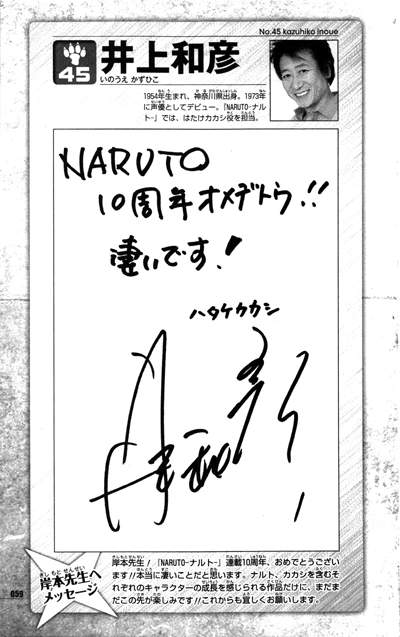 No.45 kazuhiko inoue
45
井上和彦
いのうえ かずひこ
1954年生まれ、神奈川県出身。1973年
に声優としてデビュー。『NARUTO-ナル
ト-』では、はたけカカシ役を担当。
NARUTO
10周年オメデトウ!!
凄いです!
ハタケカカシ
井上和彦
岸本先生へ
メッセージ
岸本先生!『NARUTO-ナルト-』連載10周年、おめでとうござい
ます!!本当に凄いことだと思います。ナルト、カカシを含むそ
れぞれのキャラクターの成長を感じられる作品だけに、まだま
だこの先が楽しみです!!これからも宜しくお願いします。
059